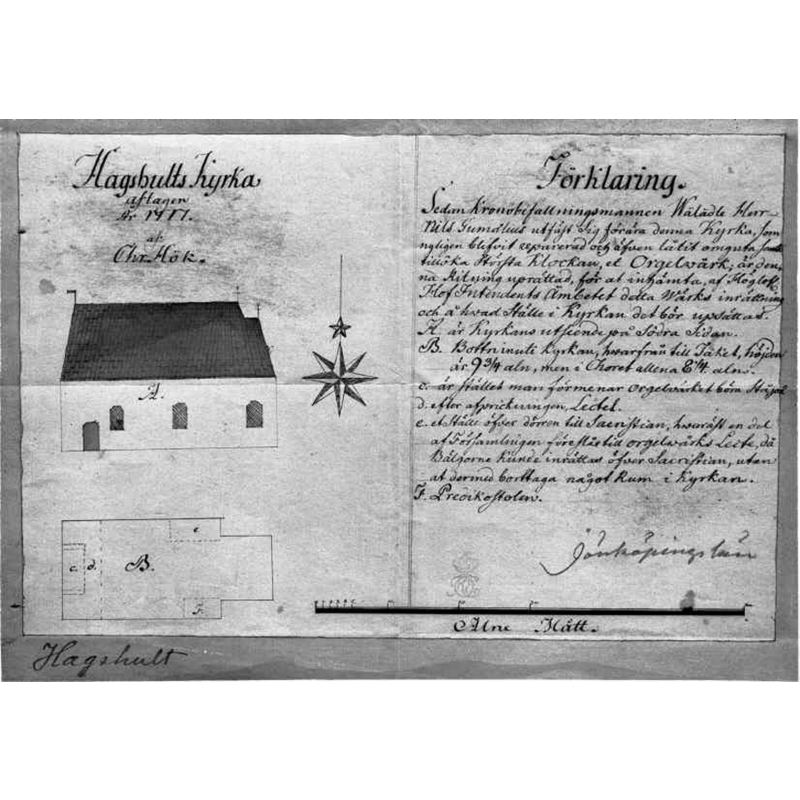 Hagshults Kyrka
aftagen
År 1777.
af
Chr. Hök.
A.
e.
c. d. B.
F.
Hagshult
Förklaring.
Sedan Kronobefallningsmannen Wälädle Herr
Nils Gumælius utfäst Sig förära denna Kyrka, som
nyligen blefvit reparerad och äfven låtit omgiuta samt
tillöka Största Klockan, et Orgelwärk; är den,
na Ritning uprättad, för at inhämta, af Höglofl.
Hof Intendents Ämbetet detta Wärks inrättning
och å hwad Ställe i Kyrkan det bör upsättas.
A. är Kyrkans utseende på Södra Sidan.
B. Bottnen uti Kyrkan, hwarfrån till Taket, höjden
är 9 3/4 aln, men i Choret allena 8 1/4 aln.
c. är stället man förmenar Orgelwärket böra Stå, på
d. efter afprickningen, Lectet.
e. et Ställe öfver dörren till Sacristian, hwaräst en del
af Församlingen föreslås till orgelwärks Lecte, då
Bälgorne kunde inrättas öfver Sacristian, utan
at dermed borttaga något Rum i Kyrkan.
F. Predikostolen.
Jönköpings län
Alne Mått.